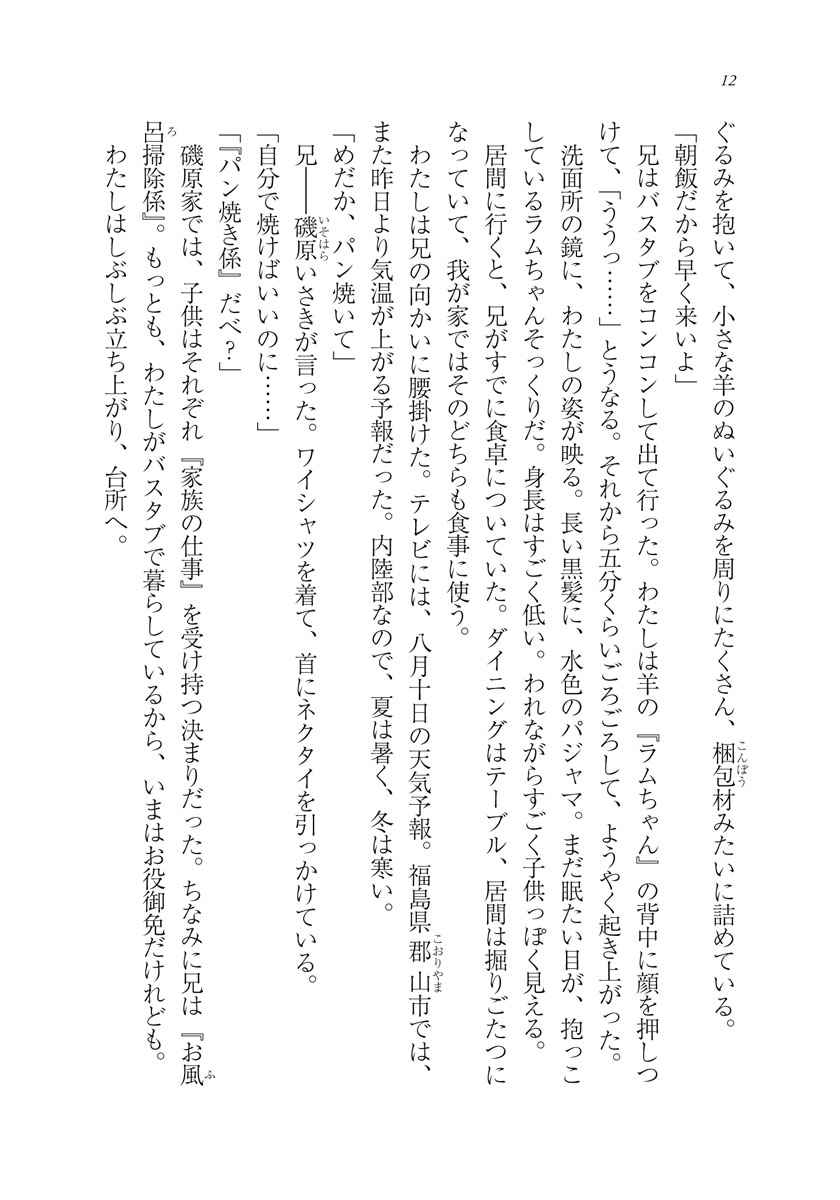 12
ぐるみを抱いて、小さな羊のぬいぐるみを周りにたくさん、梱包材みたいに詰めている。
「朝飯だから早く来いよ」
　兄はバスタブをコンコンして出て行った。わたしは羊の『ラムちゃん』の背中に顔を押しつ
けて、「ううっ……」とうなる。それから五分くらいごろごろして、ようやく起き上がった。
　洗面所の鏡に、わたしの姿が映る。長い黒髪に、水色のパジャマ。まだ眠たい目が、抱っこ
しているラムちゃんそっくりだ。身長はすごく低い。われながらすごく子供っぽく見える。
　居間に行くと、兄がすでに食卓についていた。ダイニングはテーブル、居間は掘りごたつに
なっていて、我が家ではそのどちらも食事に使う。
　わたしは兄の向かいに腰掛けた。テレビには、八月十日の天気予報。福島県郡山市では、
また昨日より気温が上がる予報だった。内陸部なので、夏は暑く、冬は寒い。
「めだか、パン焼いて」
　兄――磯原いさきが言った。ワイシャツを着て、首にネクタイを引っかけている。
「自分で焼けばいいのに……」
「『パン焼き係』だべ？」
　磯原家では、子供はそれぞれ『家族の仕事』を受け持つ決まりだった。ちなみに兄は『お風
呂掃除係』。もっとも、わたしがバスタブで暮らしているから、いまはお役御免だけれども。
　わたしはしぶしぶ立ち上がり、台所へ。